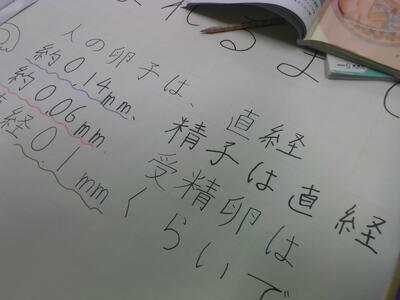 れる
人の卵子は、直経
約0.14mm、精子は直経
約0.06mm、受精卵は
経0.1mmくらいで